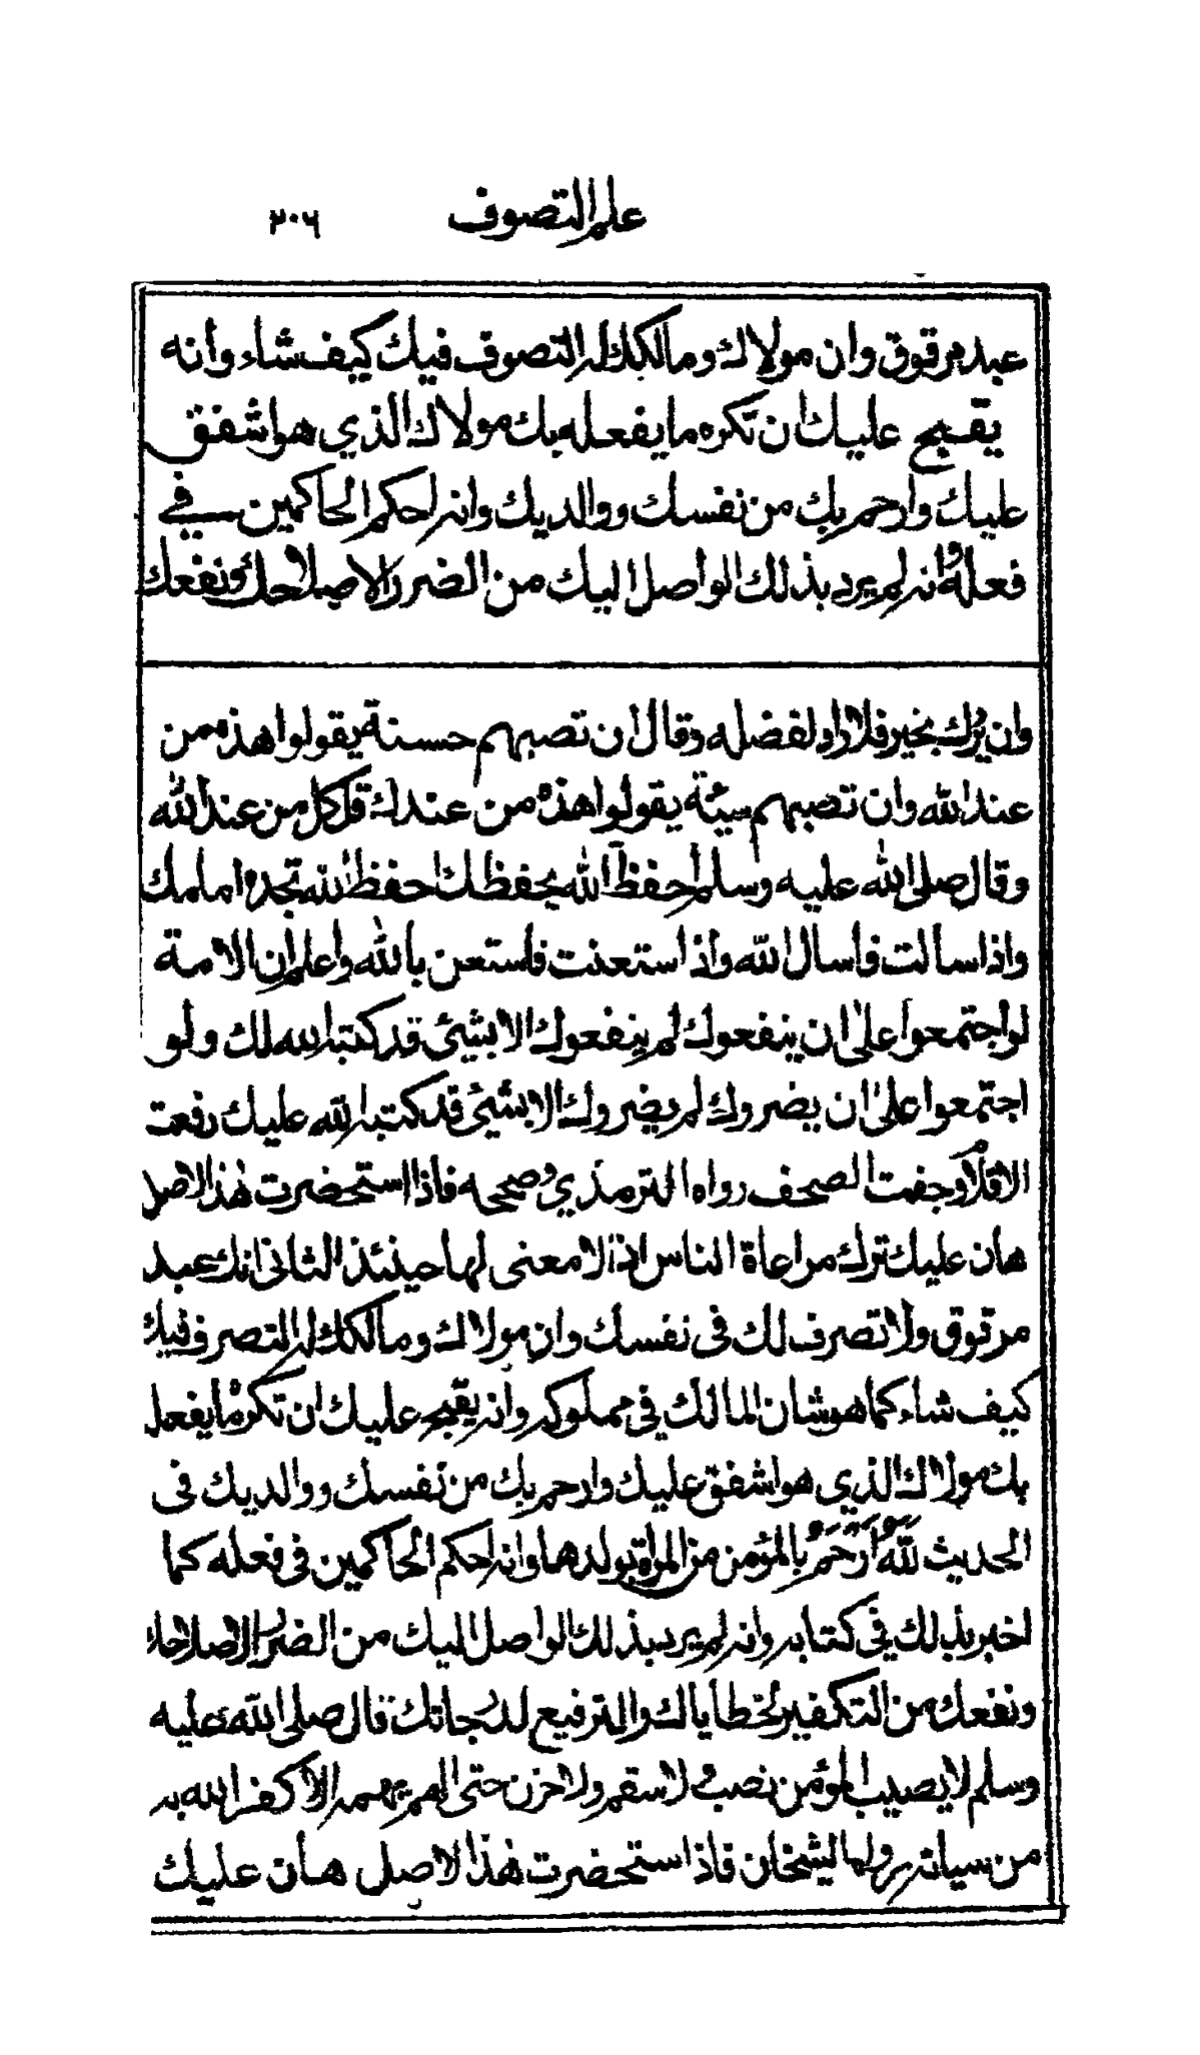 علم التصوف ٢٠٦
عبد مرقوق وان مولاك ومالكك له التصوف فيك كيف شاء وانه
يقبح عليك ان تكره ما يفعله بك مولاك الذي هو اشفق
عليك وارحم بك من نفسك ووالديك وانه احكم الحاكمين في
فعله وانه لم يرد بذلك الواصل اليك من الضرر الا صلاحك ونفعك
وان يردك بخير فلا راد لفضله وقال ان تصبهم حسنة يقولوا هذه من
عند الله وان تصبهم سيئة يقولوا هذه من عندك قل كل من عند الله
وقال صلى الله عليه وسلم احفظ الله يحفظك احفظ الله تجده امامك
واذا سالت فاسال الله واذا استعنت فاستعن بالله واعلم ان الامة
لو اجتمعوا على ان ينفعوك لم ينفعوك الا بشيئ قد كتبه الله لك ولو
اجتمعوا على ان يضروك لم يضروك الا بشيئ قد كتبه الله عليك رفعت
الاقلام وجفت الصحف رواه الترمذي وصححه فاذا استحضرت هذا الاصل
هان عليك ترك مراعاة الناس اذ لا معنى لها حينئذ الثاني انك عبد
مرقوق ولا تصرف لك فى نفسك وان مولاك ومالكك له التصرف فيك
كيف شاء كما هو شان المالك في مملوكه وانه يقبح عليك ان تكره ما يفعل
بك مولاك الذي هو اشفق عليك وارحم بك من نفسك ووالديك فى
الحديث لله ارحم بالمؤمن من المراة بولدها وانه احكم الحاكمين فى فعله كما
اخبر بذلك في كتابه وانه لم يرد بذلك الواصل اليك من الضرر الا صلاحك
ونفعك من التكفير لخطاياك والترفيع لدرجاتك قال صلى الله عليه
وسلم لا يصيب المؤمن نصب ولا سقم ولا حزن حتى الهم يهمه الا كفر الله به
من سياته رواه الشيخان فاذا استحضرت هذا الاصل هان عليك